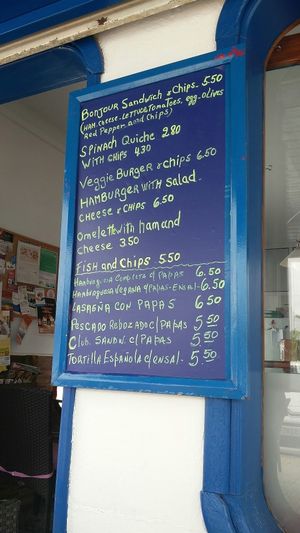 Bonjour Sandwich & Chips. 5.50
(HAM. cheese. LETTUCE TOMATOES, egg. OLIVES
Red Pepper and Chips)
SPINACH Quiche 2.80
WITH CHIPS 4.30
Veggie BURGER & Chips 6.50
HAMBURGER WITH Salad.
Cheese & CHIPS 6.50
Omelatte with ham and
cheese 3.50
FISH and Chips 5.50
Hamburguesa Completa c/ PAPAS 6.50
Hamburguesa VEGANA c/PAPAS-ENSAL- 6.50
LASAGNA CON PAPAS 6.50
PESCADO Rebozado c/PAPAS 5.50
Club. SANDW. c/ PAPAS 5.50
TORTILLA ESPAÑOLA c/ENSAL- 5.50